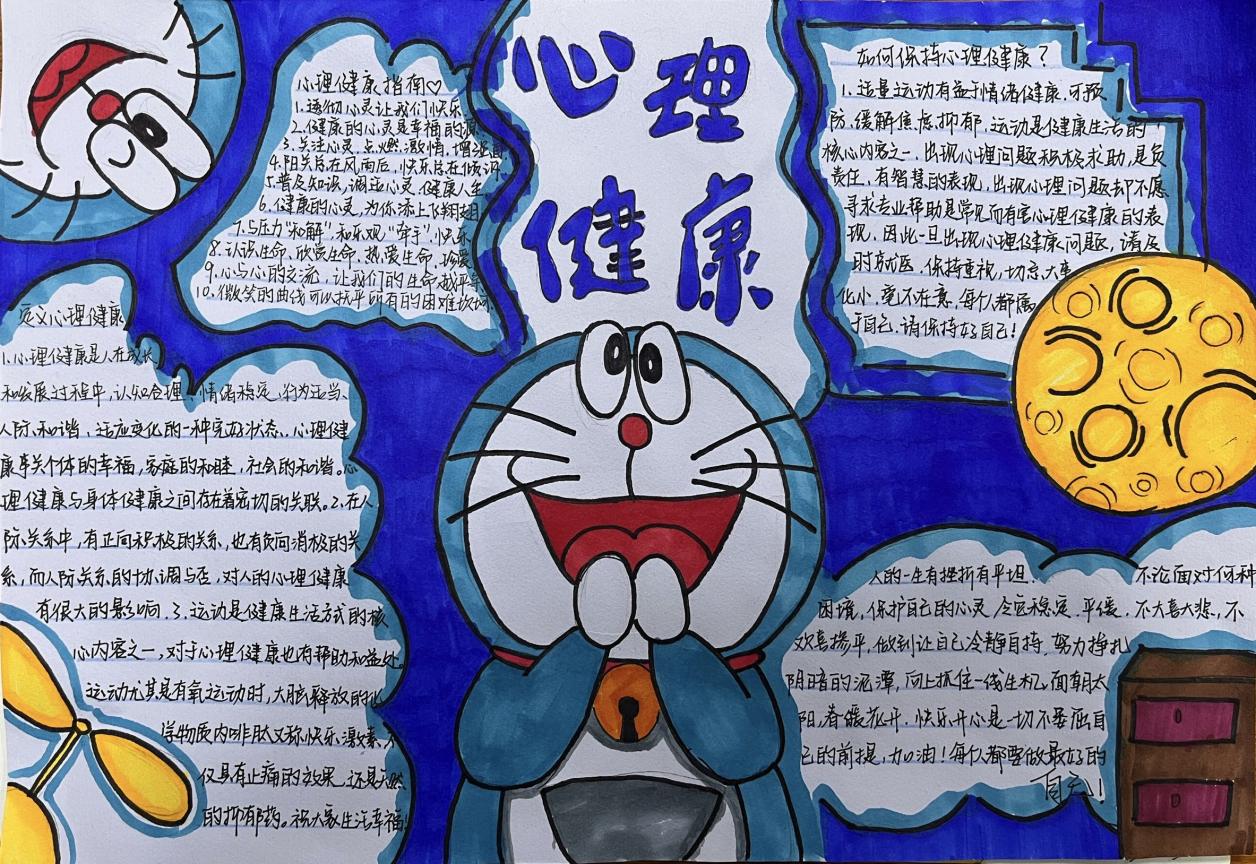 心理
健康
心理健康指南♡
1.透彻心灵让我们快乐
2.健康的心灵是幸福的源
3.关注心灵.点燃激情.增强
4.阳关总在风雨后,快乐总在倾诉
5.普及知识,调适心灵.健康人生
6.健康的心灵,为你添上飞翔翅
7.与压力"和解",和乐观"牵手".快乐
8.认识生命.欣赏生命.热爱生命.珍爱
9.心与心的交流,让我们的生命越平
10.微笑的曲线可以抚平所有的困难坎坷
如何保持心理健康?
1.适量运动有益于情绪健康.可预
防.缓解焦虑.抑郁.运动是健康生活的
核心内容之一.出现心理问题积极求助,是负
责任.有智慧的表现,出现心理问题却不愿
寻求专业帮助是常见而有害心理健康的表
现.因此一旦出现心理健康问题,请及
时就医.保持重视,切忌大事
化小,毫不在意.每个人都属
于自己.请保持好自己!
定义心理健康
1.心理健康是人在成长
和发展过程中,认知合理、情绪稳定,行为适当、
人际和谐,适应变化的一种完好状态.心理健
康事关个体的幸福,家庭的和睦,社会的和谐。心
理健康与身体健康之间存在着密切的关联。2.在人
际关系中,有正向积极的关系,也有负向消极的关
系,而人际关系的协调与否,对人的心理健康
有很大的影响.3.运动是健康生活方式的核
心内容之一,对于心理健康也有帮助和益处
运动尤其是有氧运动时,大脑释放的化
学物质内啡肽又称快乐激素,不
仅具有止痛的效果.还是天然
的抑郁药。祝大家生活幸福!
人的一生有挫折有平坦.不论面对何种
困境,保护自己的心灵.令它稳定.平缓.不大喜大悲,不
欢喜掺平,做到让自己冷静自持,努力挣扎
阴暗的泥潭,向上抓住一线生机。面朝太
阳,春暖花开.快乐开心是一切不委屈自
己的前提,加油!每个人都要做最好的
自己!!